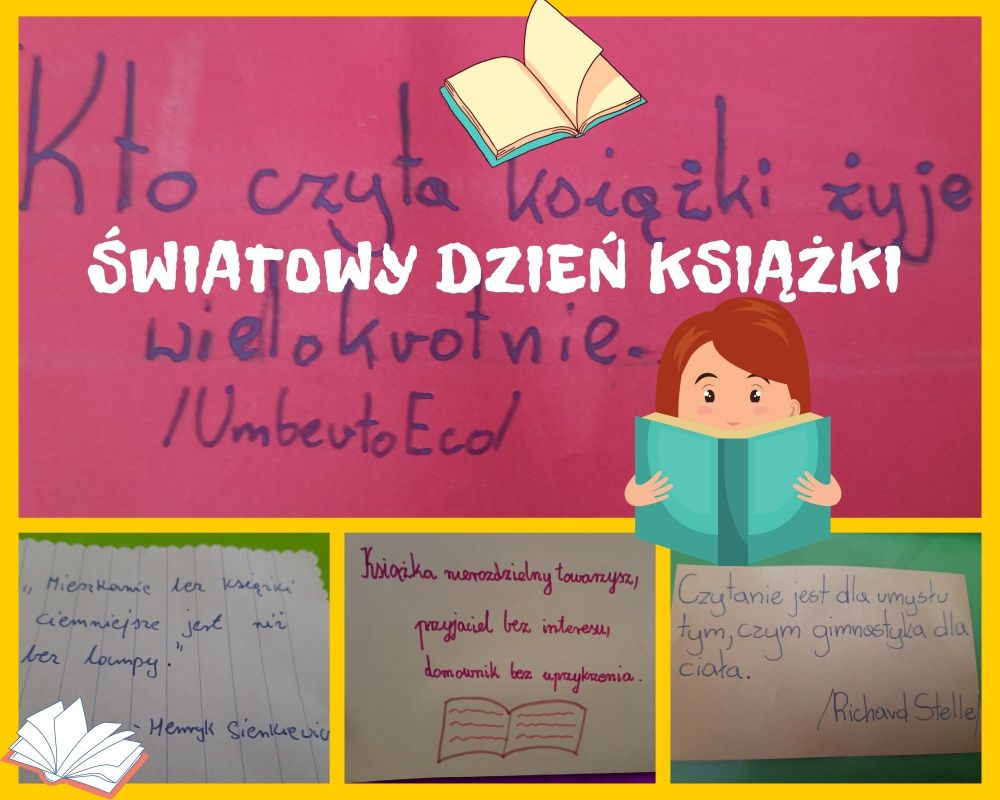 Kto czyta książki żyje
ŚWIATOWY DZIEŃ KSIĄŻKI
wielokrotnie.
/Umberto Eco/
„Mieszkanie bez książki
ciemniejsze jest niż
bez lampy."
- Henryk Sienkiewicz
Książka nierozdzielny towarzysz,
przyjaciel bez interesu,
domownik bez uprzykrzenia.
Czytanie jest dla umysłu
tym, czym gimnastyka dla
ciała.
/Richard Stelle/